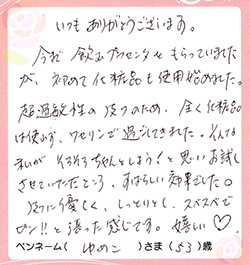 いつもありがとうございます。
今まで飲むプラセンタをもらっていました
が、初めて化粧品も使用始めました。
超過敏性の皮フのため、全く化粧品
は使わず、ワセリンで過ごしてきました。そんな
まいが そろそろちゃんとしよう!と思いお試し
させていただたところ、すばらしい効果でした。
皮フに優しく、しっとりと、スベスベで
ピン!!と張った感じです。嬉しい♡
ペンネーム( ゆめこ )さま(53)歳